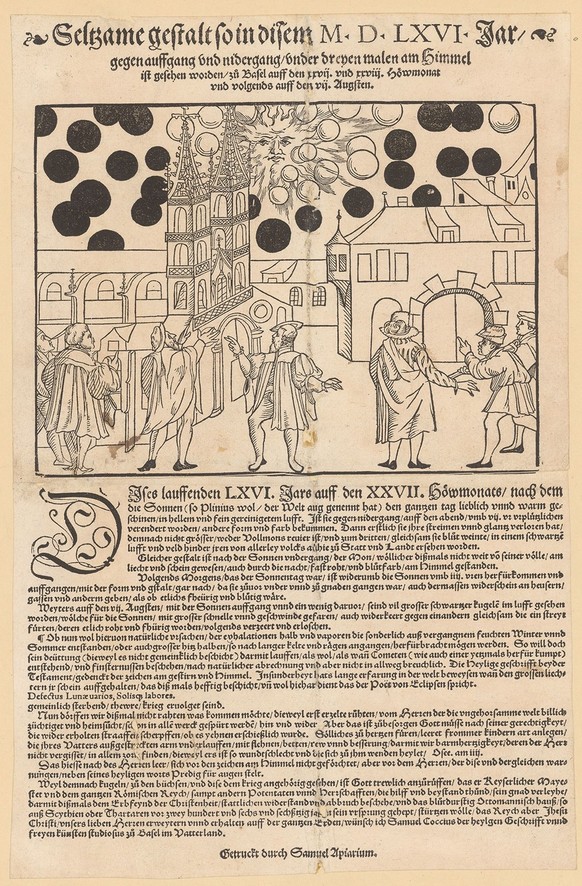 Seltzame gestalt so in disem M. D. LXVI. Jar/
gegen auffgang vnd nidergang/vnder dreyen malen am Himmel
ist gesehen worden/zů Basel auff den xxvij. vnd xxviij. Höwmonat
vnd volgends auff den vij. Augsten.
DJses lauffenden LXVI. Jars auff den XXVII. Höwmonats/nach dem
die Sonnen (so Plinius wol/der Welt aug genennt hat) den gantzen tag lieblich vnnd warm ge-
schinen/in hellem vnd fein gereinigeten lufft. Ist sie gegen nidergang/auff den abend/vmb vij. vr
verendert worden/andere form vnd farb bekummen. Dann erstlich sie ihre streimen vnnd glantz verloren hat/
demnach nicht grösser/weder Vollmons gleichsam sie blůt weinte/in einem schwartzē
lufft vnd hinder jren von allerley volck alhie zů Statt vnd Lande ersehen worden.
Gleicher gestalt ist nach der Sonnen vndergang/der Mon/wöllicher dißmals nicht weit vō seiner völle/am
liecht vnd schein gewesen/auch durch die nacht/fast rohe/vnd blůtfarb/am Himmel gestanden.
Volgends Morgens/das der Sonnentag war/ist widerumb die Sonnen vmb vren herfürkommen vnd
auffgangen/mit der form vnd gestalt/gar nach/da sie zůvor vnder vnnd zů gnaden gangen war/auch dermassen widerschein an heusern/
gassen vnd andern geben/als ob etlichs fheürig vnnd blůtig wäre.
Weyters auff den vij. Augsten/mit der Sonnen auffgang vnnd ein wenig daruor/seind vil grosser schwartzer kugelē im lufft gesehen
worden/wölche für die Sonnen/mit grosser schnelle vnnd geschwinde gefaren/auch widerkeert gegen einandern gleichsam die ein streyt
fürten/deren etlich roht vnd fhürig worden/volgends verzeert vnd erloschen.
Ob nun wol hieruon natürliche vrsachen/der exhalationen halb vnd vaporen die sonderlich auß vergangnem feichten Winter vnnd
Sommer entstanden/oder auch grosser hitz halben/so nach langer kelte vnd rägen angangen/herfür bracht mögen werden. So will doch
sein deüttung (dieweyl es nicht gemeinklich beschicht) darmit lauffen/als wol/als wañ Cometen (wie auch einer yetzmals herfür kumpt)
entstehend/vnd finsternussen beschehen/nach natürlicher abrechnung vnd aber nicht in allweg breuchlich. Die Heylige geschrifft beyder
Testament/gedenckt der zeichen am gestirn vnd Himmel. Insunderheyt hats lange erfarung in der welt bewysen wañ den grossen liech-
tern jr schein auffgehalten/das diß mals hefftig beschicht/vō wol hiehar dient das der Poet von Eclipsen spricht.
Defectus Lunæ uarios, Solisq; labores.
gemeinlich sterbend/theüre/krieg eruolget seind.
Nun dörffen wir dißmal nicht rahten was kommen möchte/dieweyl erst erzelte růhten/vom Herren der die vngehorsame welt billich
züchtiget vnd heimsůcht/sie in all werck gespürt werdē/hin vnd wider Aber das ist zůbesorgen Gott müsse nach seiner gerechtigkeyt/
die wider erholten straaffē scherpffen/ob es yehnen erschießlich wurde. Söllliches zů herzen füren/leeret frommer kindern art anlegen/
die jhres Vatters außgestreckten arm vnd glauffen/mit flehnen/betten/rew vnnd besserung/darmit wir barmhertzigkeyt/deren der Herr
nicht vergisset/in allem zorn/finden/dieweyl er es ist so wund schlecht vnd die sich zů jhm wenden heylet/ Osee. am iij.
Das sie ist nach des Herren leer/sich vor den zeichen am Himmel nicht geförchtet/aber vor dem Herren/der dise vnd dergleichen war-
nungen/neben seines heyligen worts Predig für augen stelt.
Weyl demnach kugeln/zů den büchsen/vnd diß dem krieg angehörig geschen/ist Gott trewlich anzürüffen/das er Keyserlicher Mayes-
stet vnd dem gantzen Römischen Reych/sampt andern Potentaten vnd Herschafften/die hilff vnd beystand thůnd/sein gnad verleyhe/
darmit dißmals dem Erbfeynd der Christenheit/stattlichen widerstand vnd abbruch beschehe/vnd das blůtdürstig Ottomannisch hauß/so
auß Scythien oder Thartaren vor zwey hundert vnd sechs vnd sechßzig jaren sein vrsprung gehept/stürtzen wölle/das Reych aber Jhesu
Christi/vnsers lieben Herren erweytern vnnd erhalten auff der gantzen Erden/wünsch ich Samuel Coccius der heyligen Geschrifft vnnd
freyen künsten studiosus zů Basel im Vatterland.
Getruckt durch Samuel Apiarium.